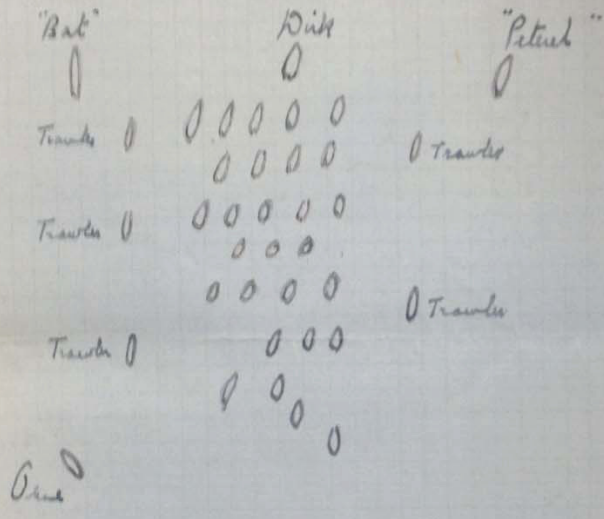 "Bat" Dirk "Peterel"
Trawler Trawler
Trawler
Trawler
Trawler